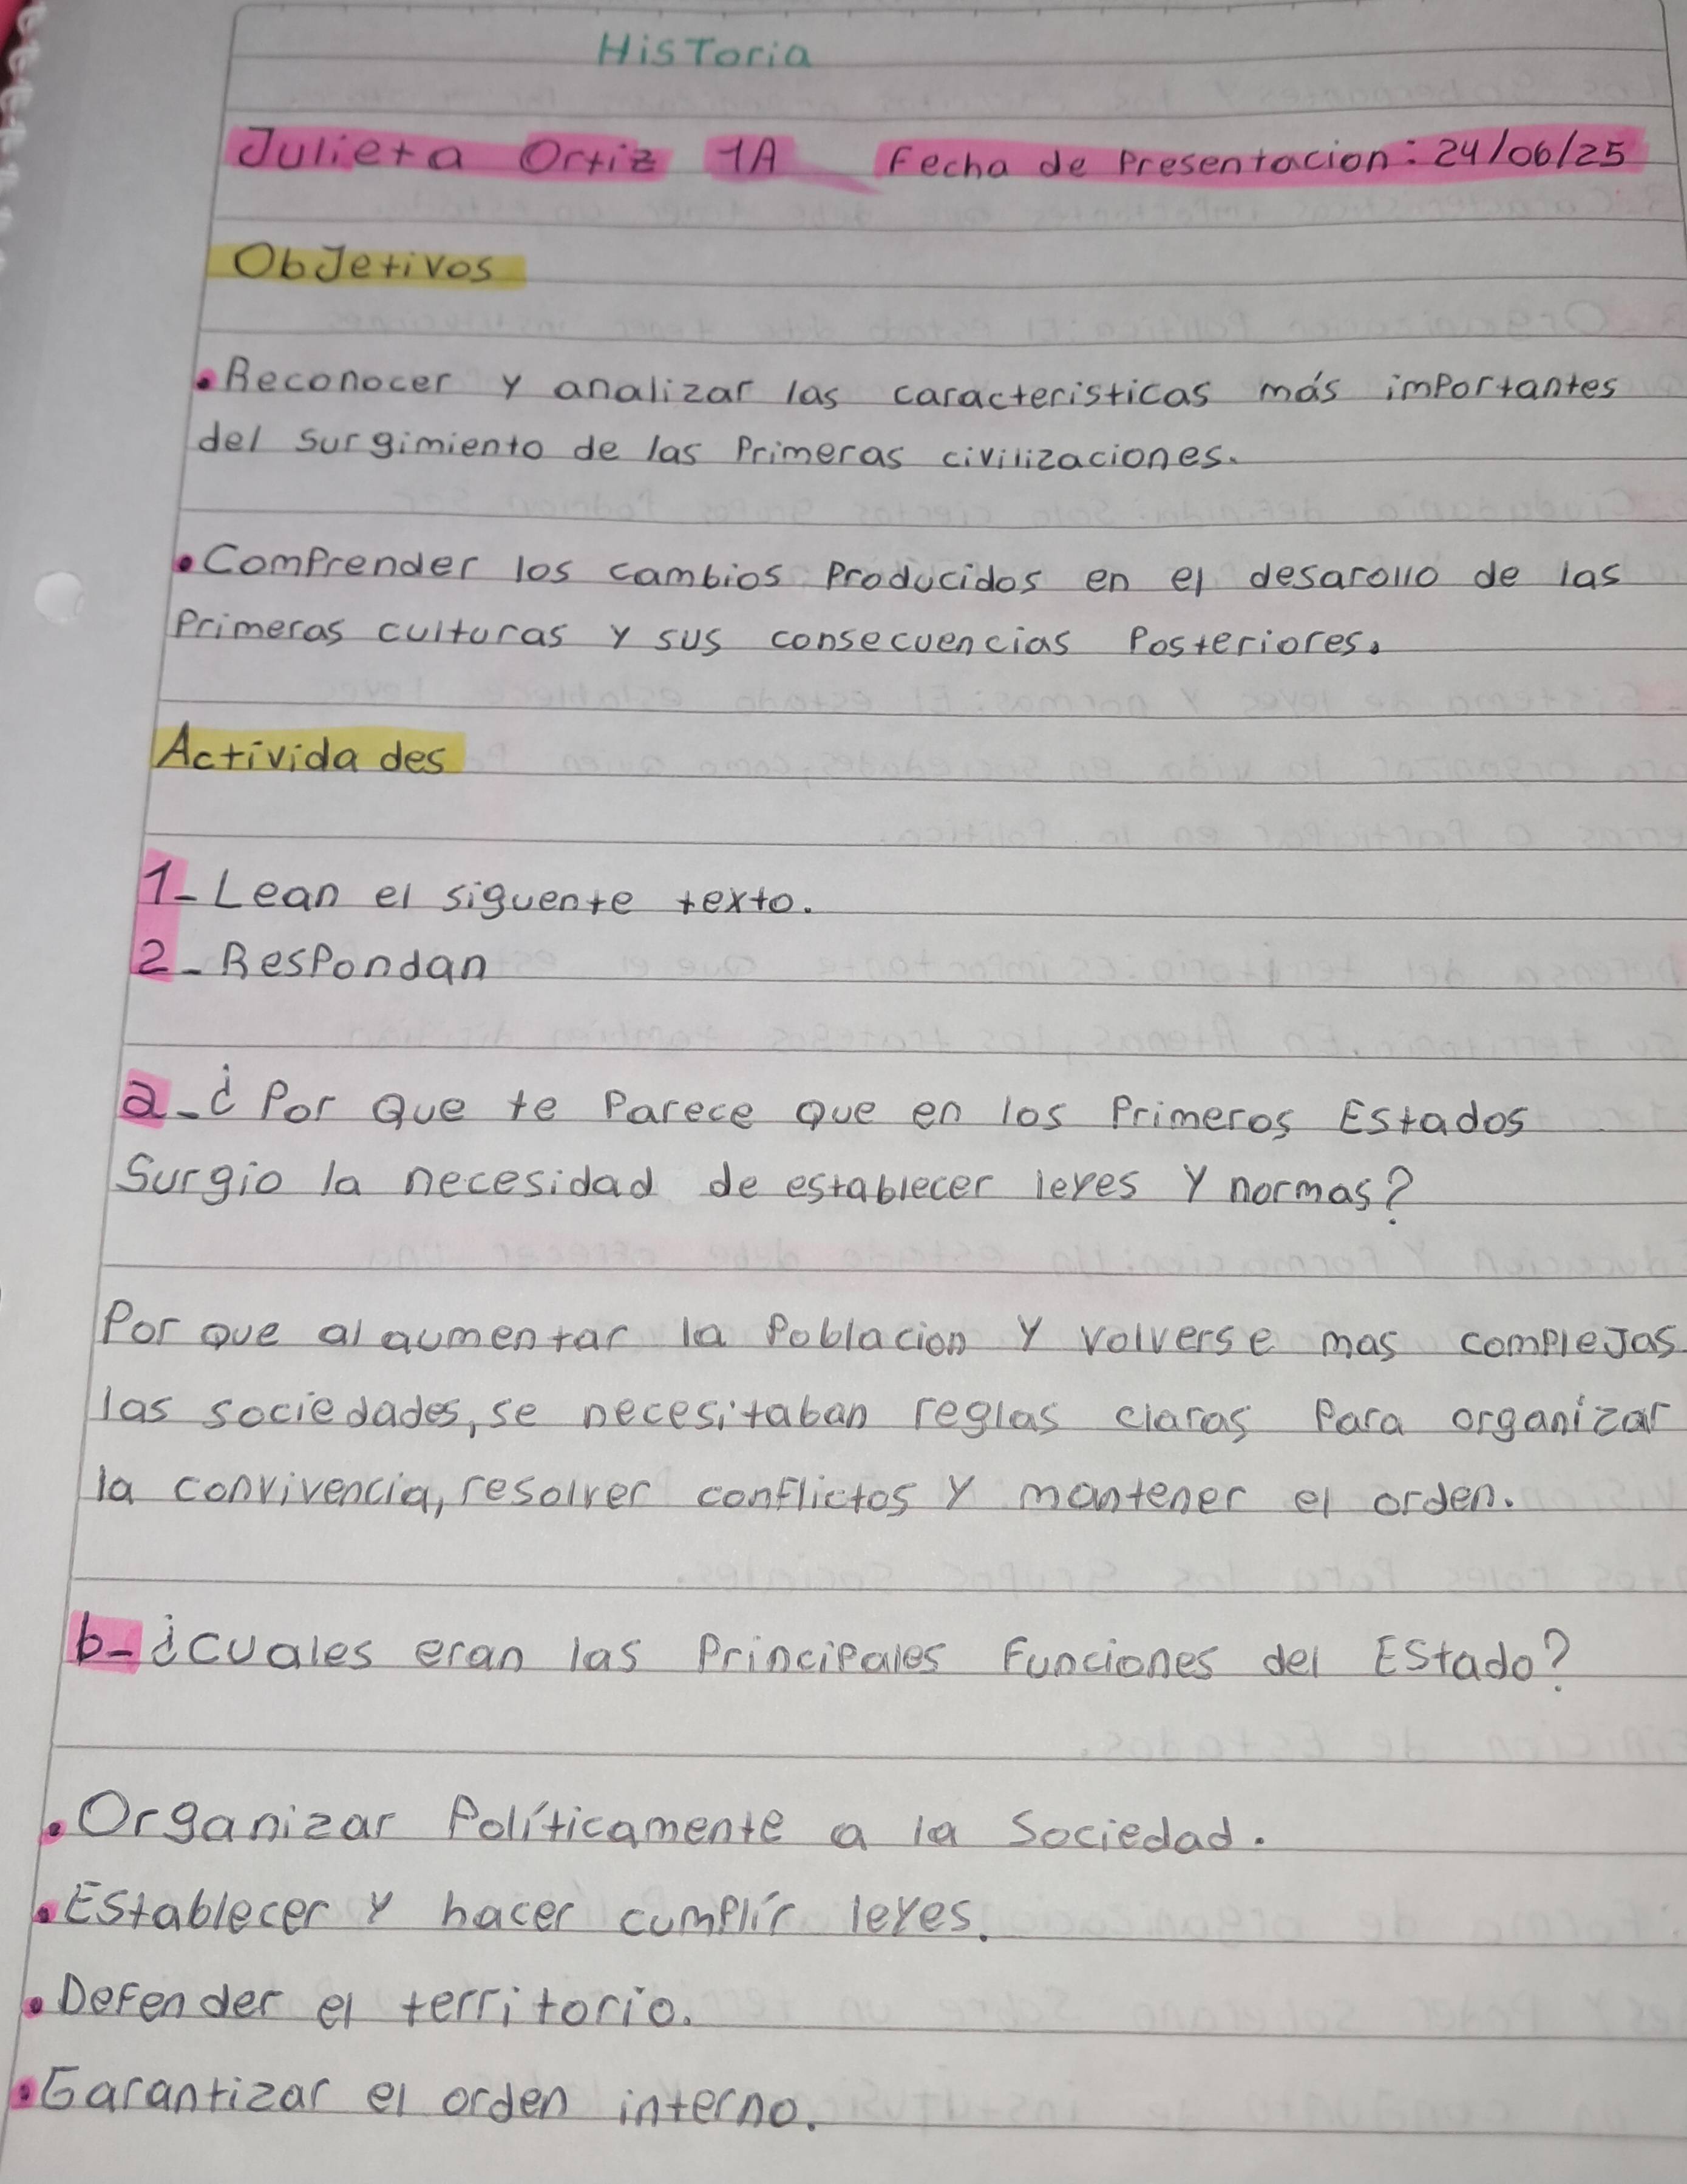 HisToria
Julieta Ortiz 1A Fecha de Presentacion: 24/06/25
ObJetivos
• Reconocer y analizar las caracteristicas más importantes
del surgimiento de las Primeras civilizaciones.
• Comprender los cambios Producidos en el desarollo de las
Primeras culturas y sus consecuencias Posteriores.
Activida des
1- Lean el siguente texto.
2- Respondan
a- ¿Por Que te Parece Que en los Primeros Estados
Surgio la necesidad de establecer leyes y normas?
Por que al aumentar la Poblacion y volverse mas compleJas
las sociedades, se necesitaban reglas claras Para organizar
la convivencia, resolver conflictos y mantener el orden.
b- ¿cuales eran las Principales Funciones del Estado?
• Organizar Políticamente a la Sociedad.
• Establecer y hacer cumplír leyes.
• Defender el territorio.
• Garantizar el orden interno.